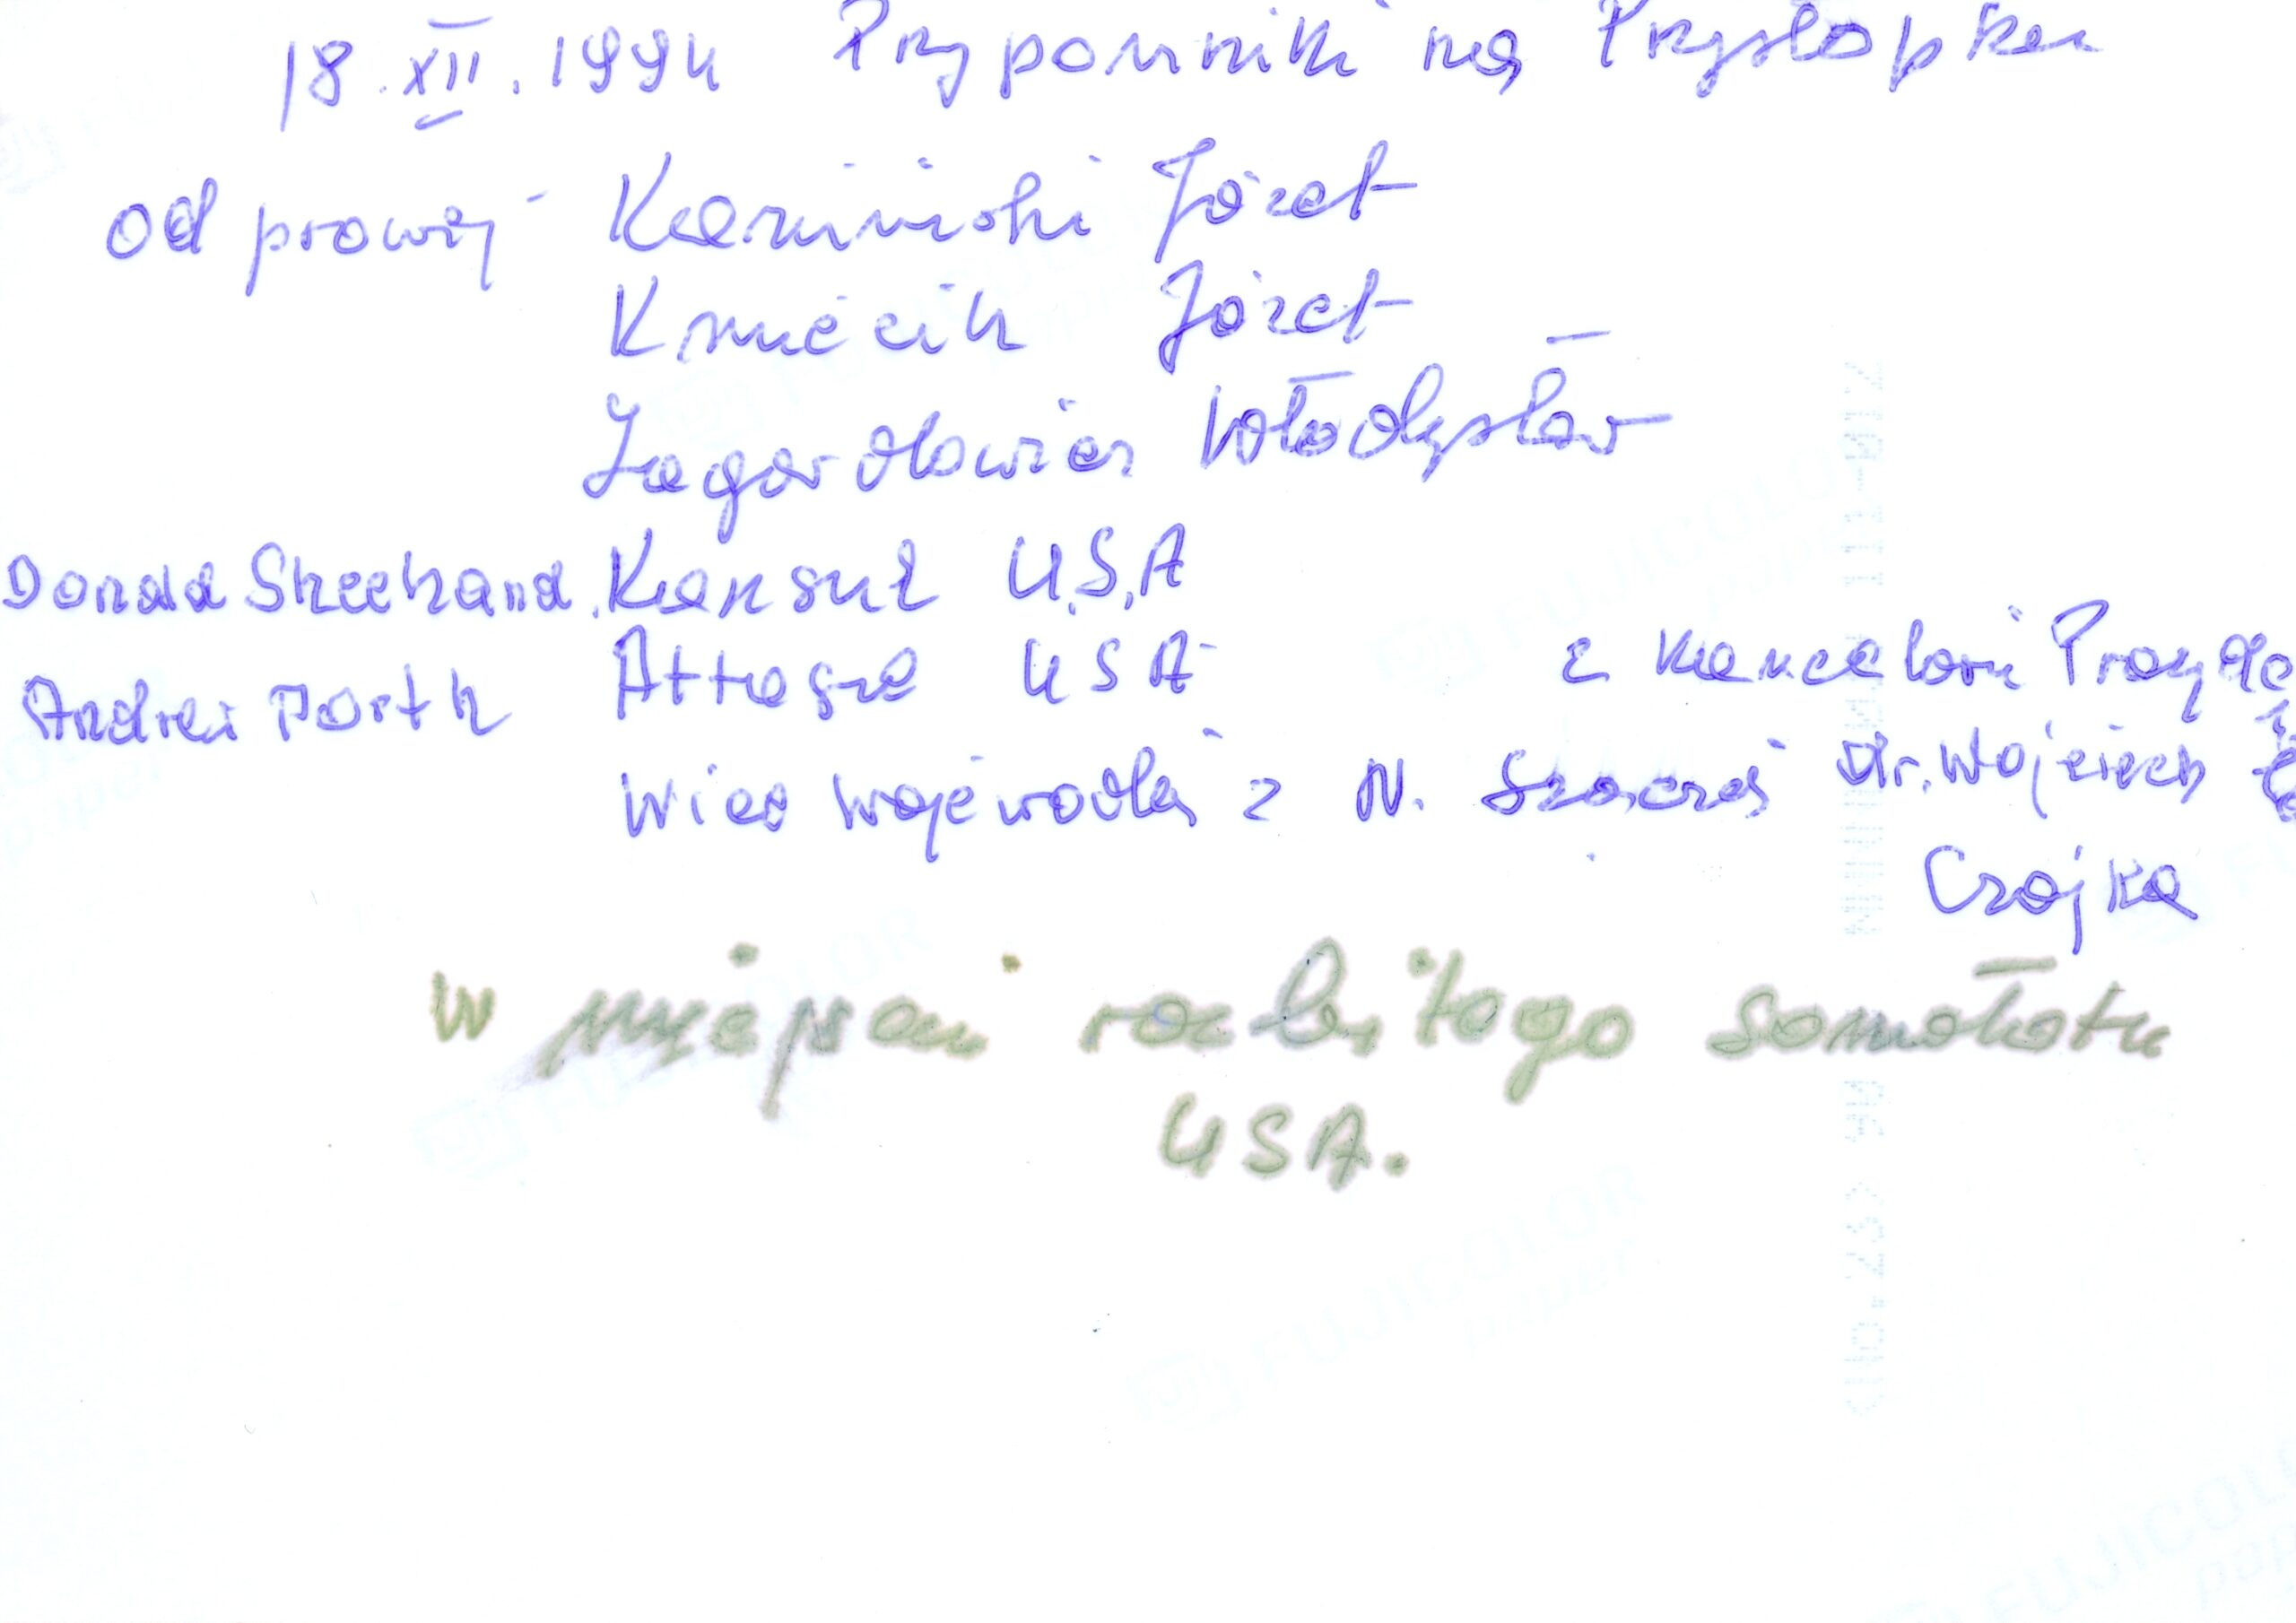 18.XII.1994 Przypomnik na Przysłopku
od prawej - Kamiński Józef
Kruścik Józef
Zagordłowicz Władysław
Donald Sheehand. Konsul U.S.A
Andrei Porth Attaszé USA z Kancelarii Prezyde
Wice wojewoda z N. Sącza dr. Wojciech
Czajka
w miejscu rozbitego samolotu
USA.
FUJICOLOR
paper